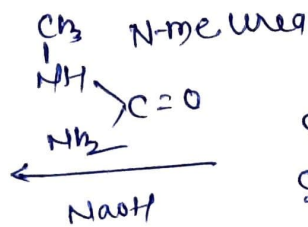 CH3 N-me urea
NH
C=O
NH2
NaOH